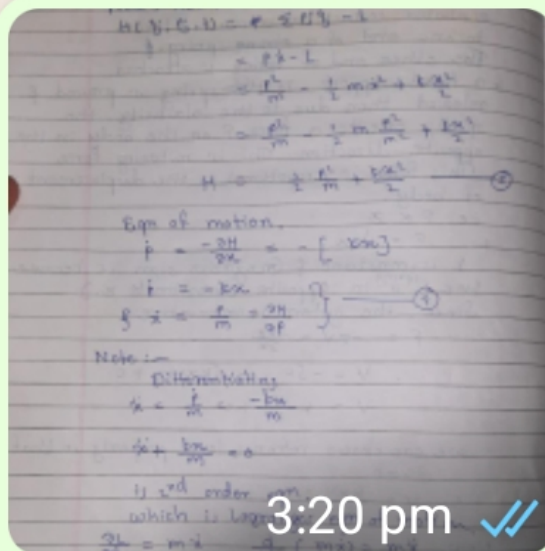 H(q, p, t) = Σ pq̇ - L
= pẋ - L
= p²/m - 1/2 mẋ² + kx²/2
= p²/m - 1/2 m p²/m² + kx²/2
H = 1/2 p²/m + kx²/2
Eqn of motion.
ṗ = -∂H/∂x = - [ kx]
ṗ = -kx
& ẋ = p/m = ∂H/∂p
Note :-
Differentiating
ẍ = ṗ/m = -kx/m
ẍ + kx/m = 0
is 2nd order
which is
∂L/∂ẋ = mẋ (mẋ) = mẍ
3:20 pm